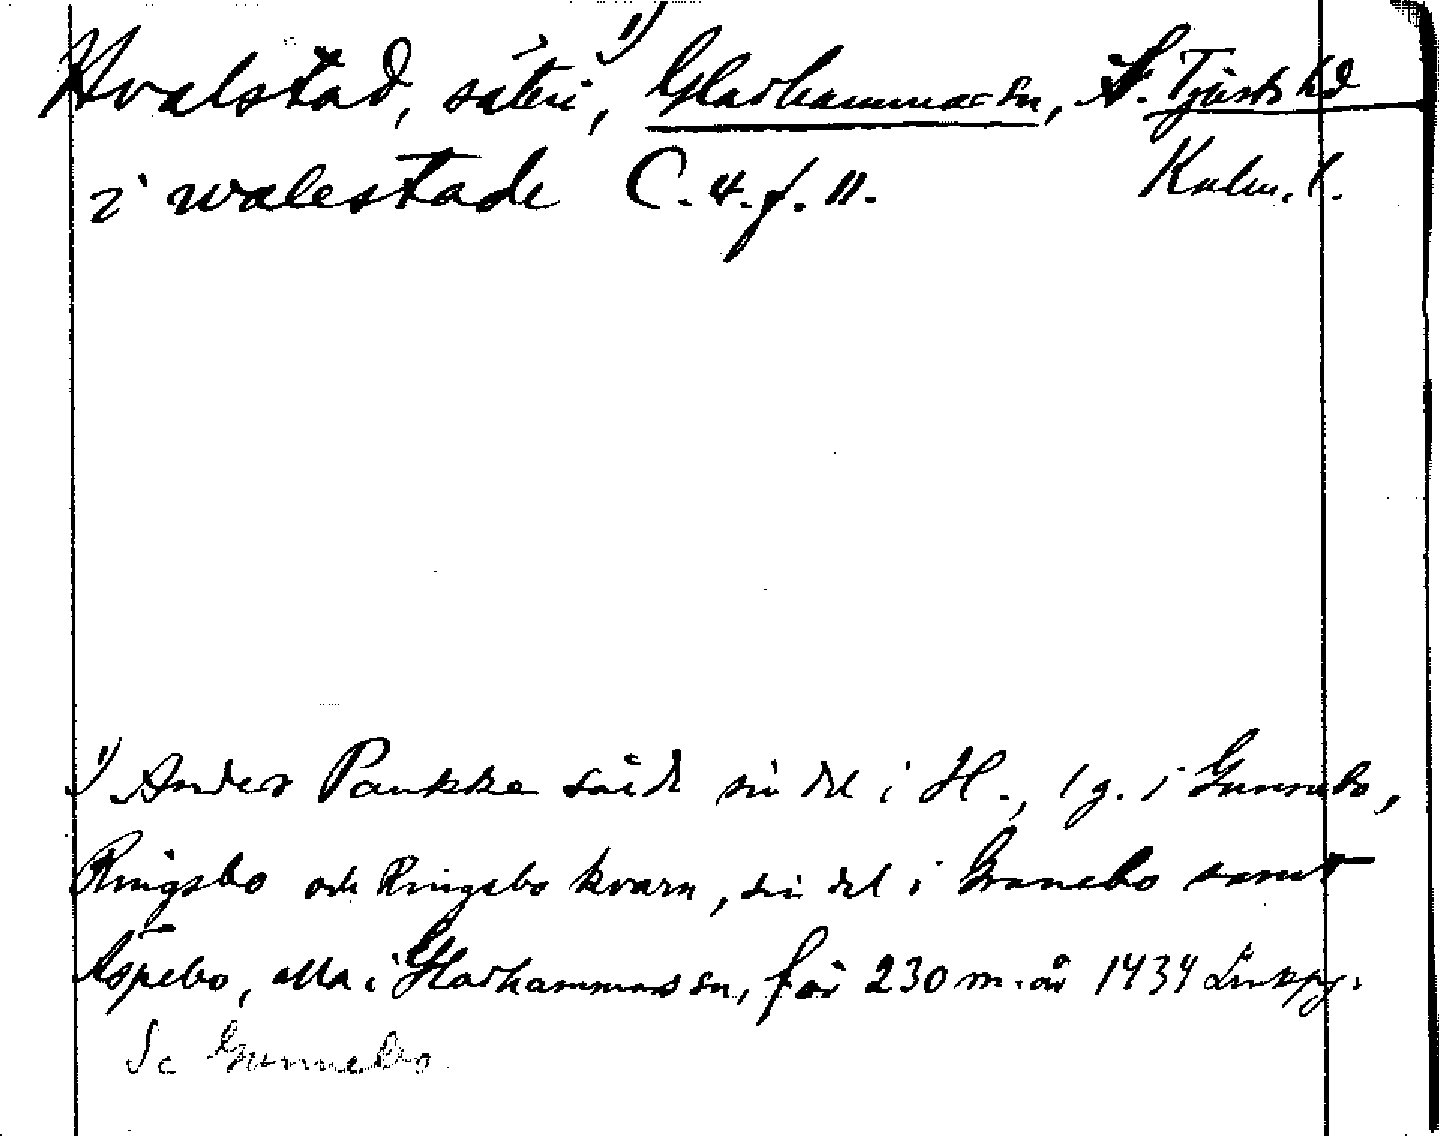 Hvalstad, säteri, 1) Gladhammar sn, S. Tjusts hd
i walestade C. 4. f. 11. Kalm. l.
1) Anders Pankke sålde sin del i H., 1 g. i Gunnebo,
Ringsbo och Ringsbo kvarn, sin del i Granebo samt
Äspebo, alla i Gladhammars sn, för 230 m. år 1434 Linkpg.
Se Gunnebo.